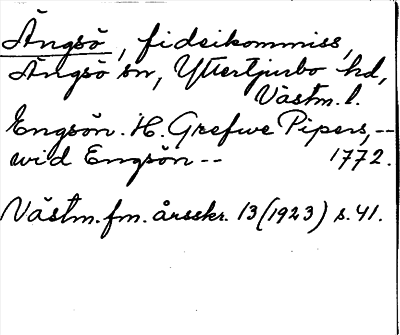 Ängsö, fideikommiss,
Ängsö sn, Yttertjurbo hd,
Västm. l.
Engsön. H. Grefwe Pipers, --
wid Engsön -- 1772.
Västm. fm. årsskr. 13 (1923) s. 41.